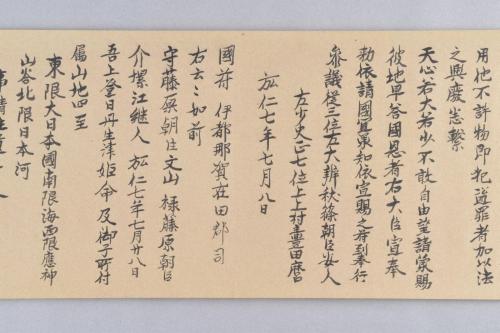 用他不許物即犯盗罪者加以法
之興廢悉繫
天心若大若少不敢自由望請蒙賜
彼地早答國恩者右大臣宣奉
勅依請國宜承知依宣賜之苻到奉行
參議從三位左大辨秋篠朝臣安人
左少史正七位上上村主豊田麿
弘仁七年七月八日
國苻 伊都那賀在田郡司
右云々如前
守藤原朝臣文山 掾藤原朝臣
介螺江継人 弘仁七年七月廿八日
吾上登日丹生津姫命及御子所付
屬山地四至
東限大日本國南限海西限應神
山谷北限日本河